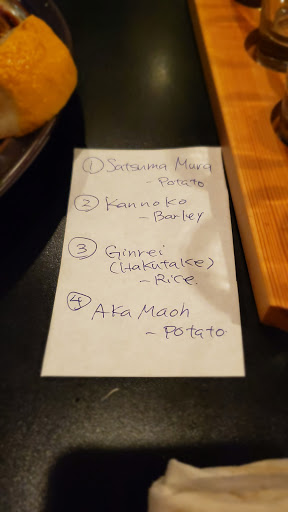 ① Satsuma Mura
- Potato
② Kannoko
- Barley
③ Ginrei
(Hakutake)
- Rice.
④ AKa Maoh
- Potato